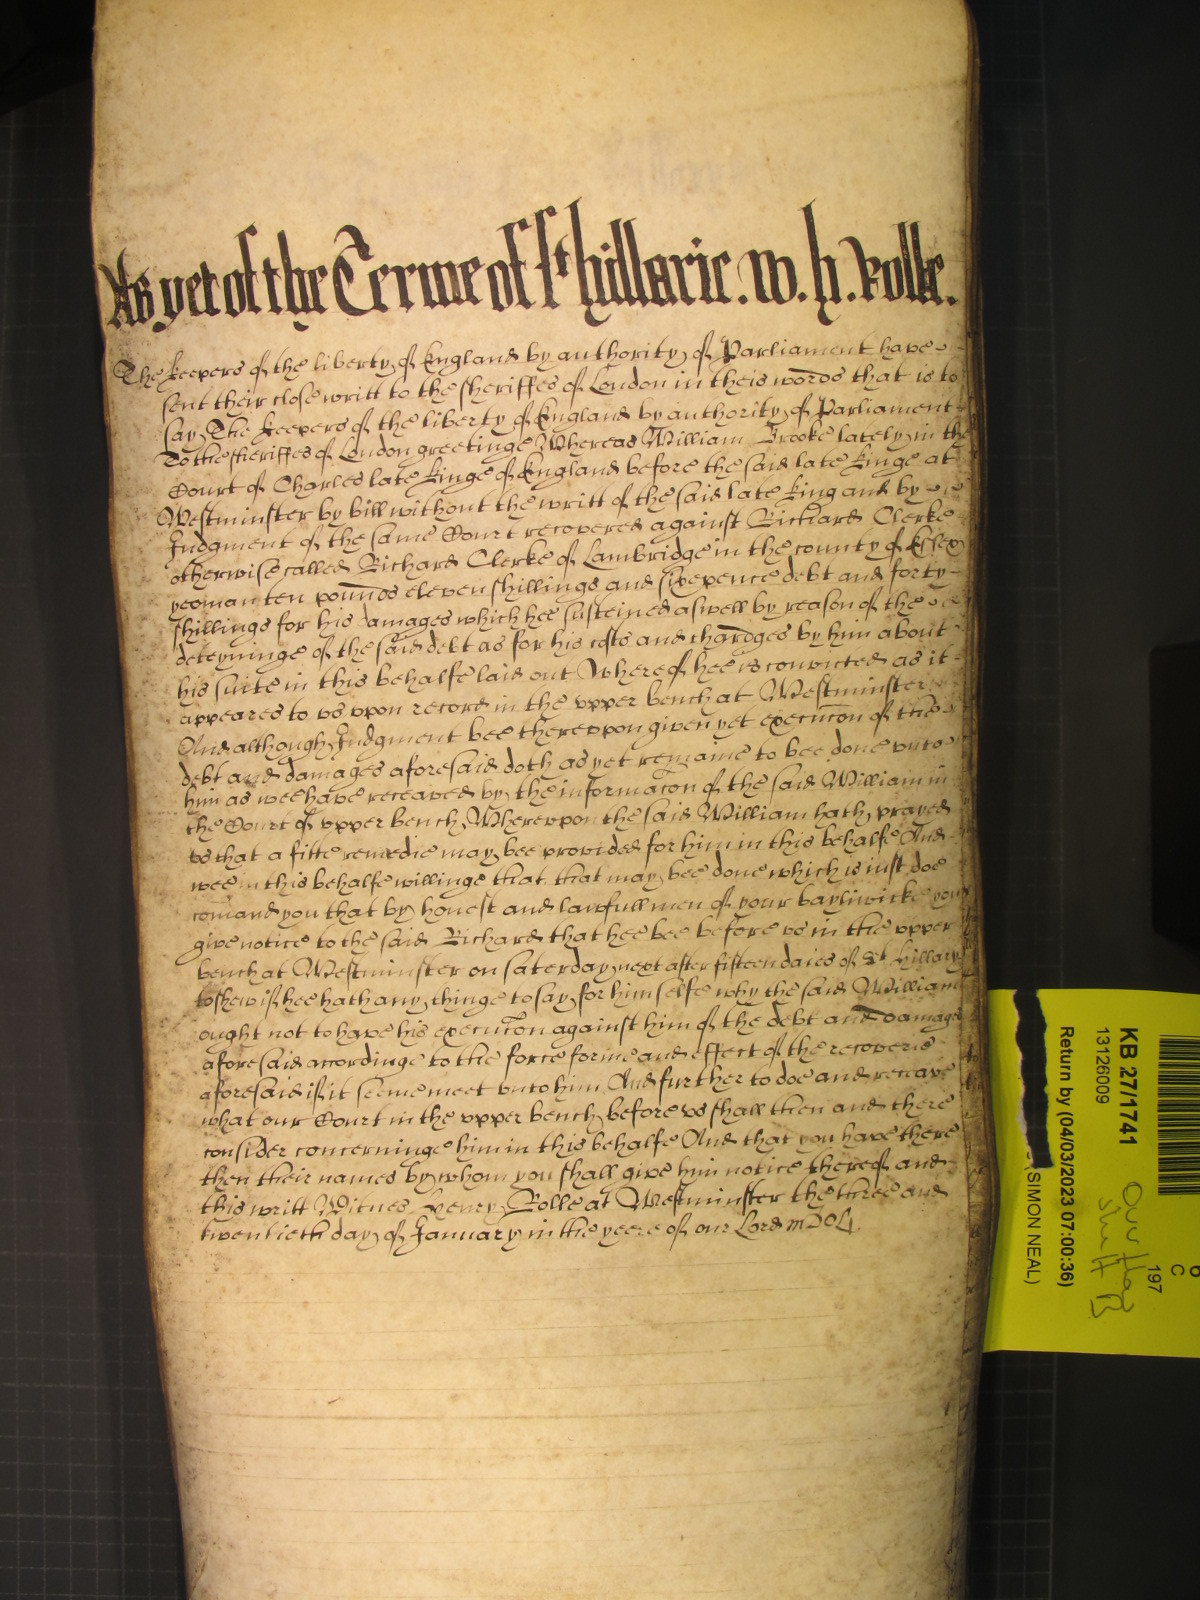 As yet of the Terme of st hillarie. W. h. Rolle.
The keepers of the liberty of England by authority of Parliament have
sent their close writt to the sheriffes of London in theis words that is to
say The keepers of the liberty of England by authority of Parliament
To the sheriffes of London greetinge Whereas William Brooke lately in the
Court of Charles late kinge of England before the said late kinge at
Westminster by bill without the writt of the said late king and by
Judgment of the same Court recovered against Richard Clerke
otherwise called Richard Clerke of Lambridge in the county of Essex
yeoman ten pounds eleven shillings and sixepence debt and forty
shillings for his damages which hee susteined aswell by reason of the
deteyninge of the said debt as for his costs and chardges by him about
his suite in this behalfe laid out Whereof hee is convicted as it
appeares to us upon record in the upper bench at Westminster
And although Judgment bee thereupon given yet execucon of the
debt and damages aforesaid doth as yet remaine to bee done unto
him as wee have receaved by the informacon of the said William in
the Court of upper bench Whereupon the said William hath prayed
us that a fitte remedie may bee provided for him in this behalfe And
wee in this behalfe willinge that that may bee done which is iust doe
comand you that by honest and lawfull men of your bayliwicke you
give notice to the said Richard that hee bee before us in the upper
bench at Westminster on saterday next after fifteen daies of St Hillary
to shew if hee hath any thinge to say for himselfe why the said William
ought not to have his execucon against him of the debt and damages
aforesaid accordinge to the force forme and effect of the recoverie
aforesaid if it seeme meet unto him And further to doe and receave
what our Court in the upper bench before us shall then and there
consider concerninge him in this behalfe And that you have there
then their names by whom you shall give him notice thereof and
this writt Witnes Henry Rolle at Westminster the three and
twentieth day of January in the yeere of our Lord
KB 27/1741
13126009
Return by (04/03/2023 07:00:36)
(SIMON NEAL)
197
C
6